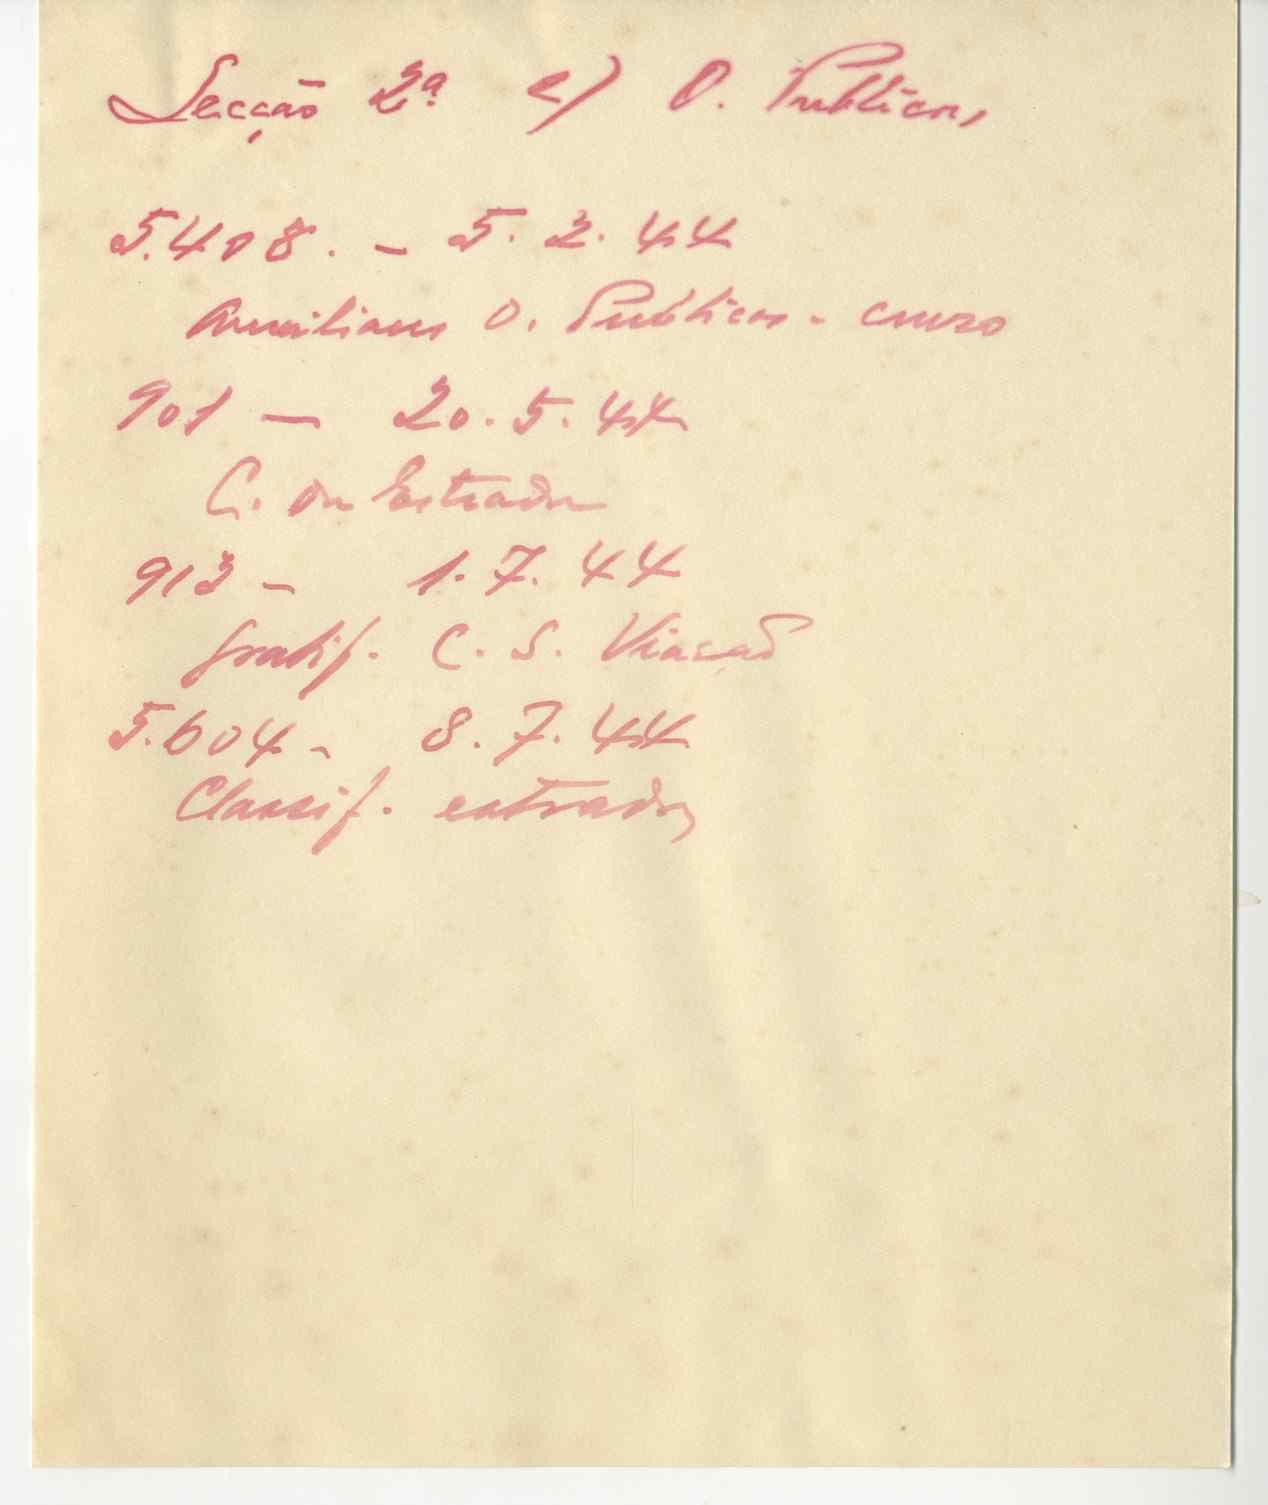 Secção 2ª e) O. Publicas,
5.408. - 5. 2. 44
Auxiliares O. Publicas - curso
901 - 20. 5. 44
C. da Estrada
913 - 1. 7. 44
Gratif. C. S. Viação
5.604 - 8. 7. 44
Classif. estradas